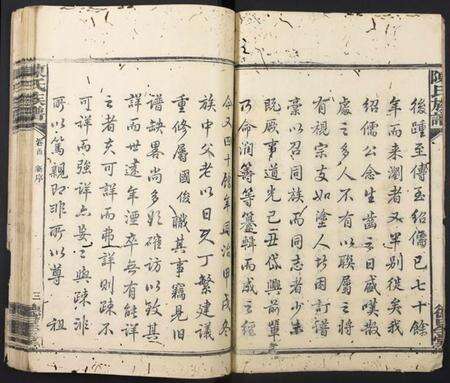 陳氏族譜
後踵至傳至紹儒已七十餘
年而来瀏者又單別從矣我
紹儒公念生齒之日盛嘆散
處之多人不有以聯属之將
有視宗支如塗人者因訂譜
稾以召同族而同志者少焉
既厥事道光己卯岱興前輩
乃命潤等等纂輯而成之經
今又四十餘年同治甲戌冬
族中父老以日久丁繁建議
重修属國俊識其事竊見旧
譜缺畧尚多題確访以致其
詳而世遠年湮卒無有能詳
之者夫可詳而弗詳則疎不
可詳而强詳亦妄之與疎非
所以篤親即非所以尊 祖
陳氏族譜
卷首 新序
三